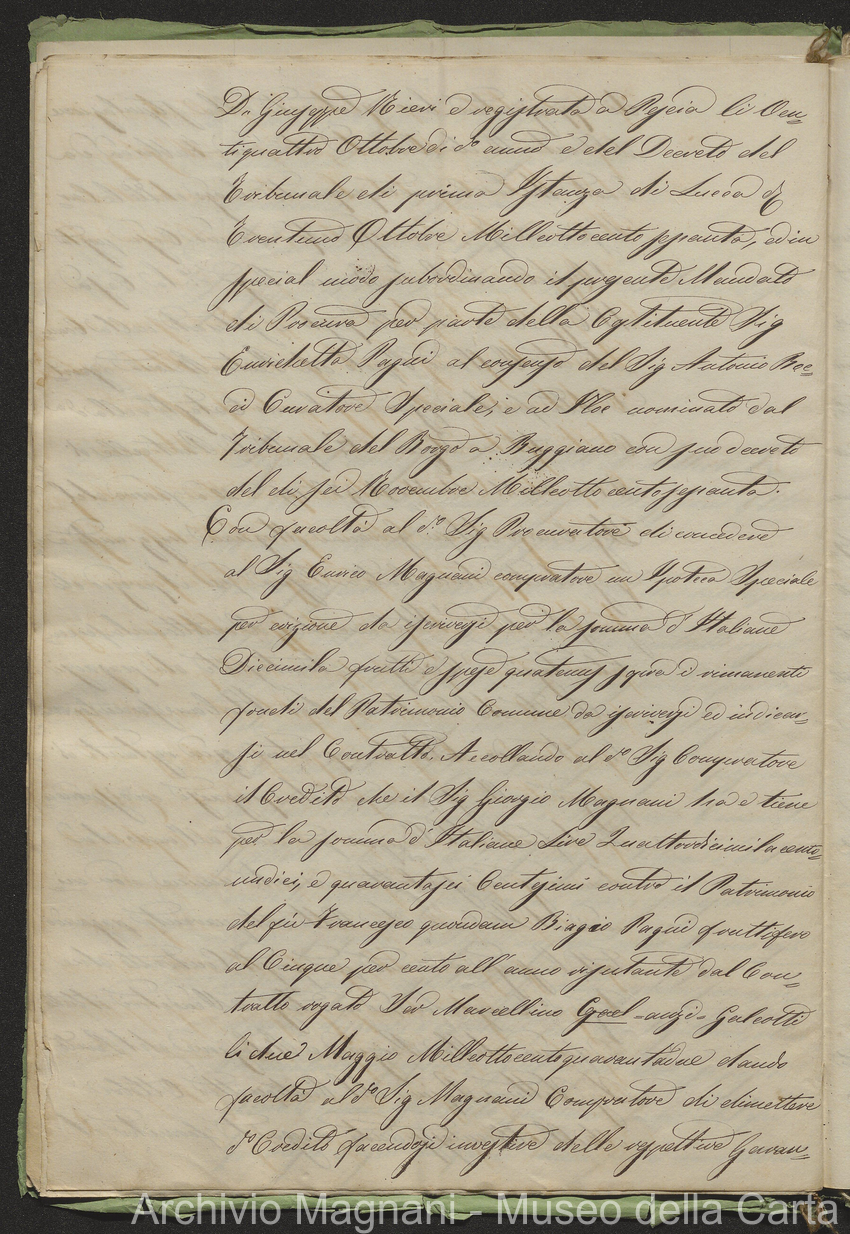 Dr. Giuseppe Nieri e registrata a Pescia li Ven=
tiquattro Ottobre di do. anno e del Decreto del
Tribunale di prima Istanza di Lucca de
Trentuno Ottobre Milleottocentosessanta, ed in
special modo subordinando il presente Mandato
di Procura per parte della Costituente Sig
Enrichetta Pagni al consenso del Sig Antonio Roc=
ci Curatore Speciale, e ad Hoc nominato dal
Tribunale del Borgo a Buggiano con suo decreto
del di sei Novembre Milleottocentosessanta.
Con facoltà al do. Sig Procuratore di concedere
al Sig Enrico Magnani compratore un Ipoteca Speciale
per evizione da iscriversi per la somma d'Italiane
Diecimila frutti e spese quatenus sopra i rimanenti
fondi del Patrimonio Comune da iscriversi ed indicar=
si nel Contratto. Accollando al do Sig Compratore
il Credito che il Sig Giorgio Magnani ha e tiene
per la somma d'Italiane Lire Quattordicimilacento=
undici, e quarantasei Centesimi contro il Patrimonio
del fù Francesco quondam Biagio Pagni fruttifero
al Cinque per cento all'anno risultante dal Con=
tratto rogato Ser Marcellino Gael =anzi= Galeotti
li due Maggio Milleottocentoquarantadue dando
facoltà al do Sig Magnani Compratore di dimettere
do Credito facendosi investire delle rispettive Garan=
Archivio Magnani - Museo della Carta